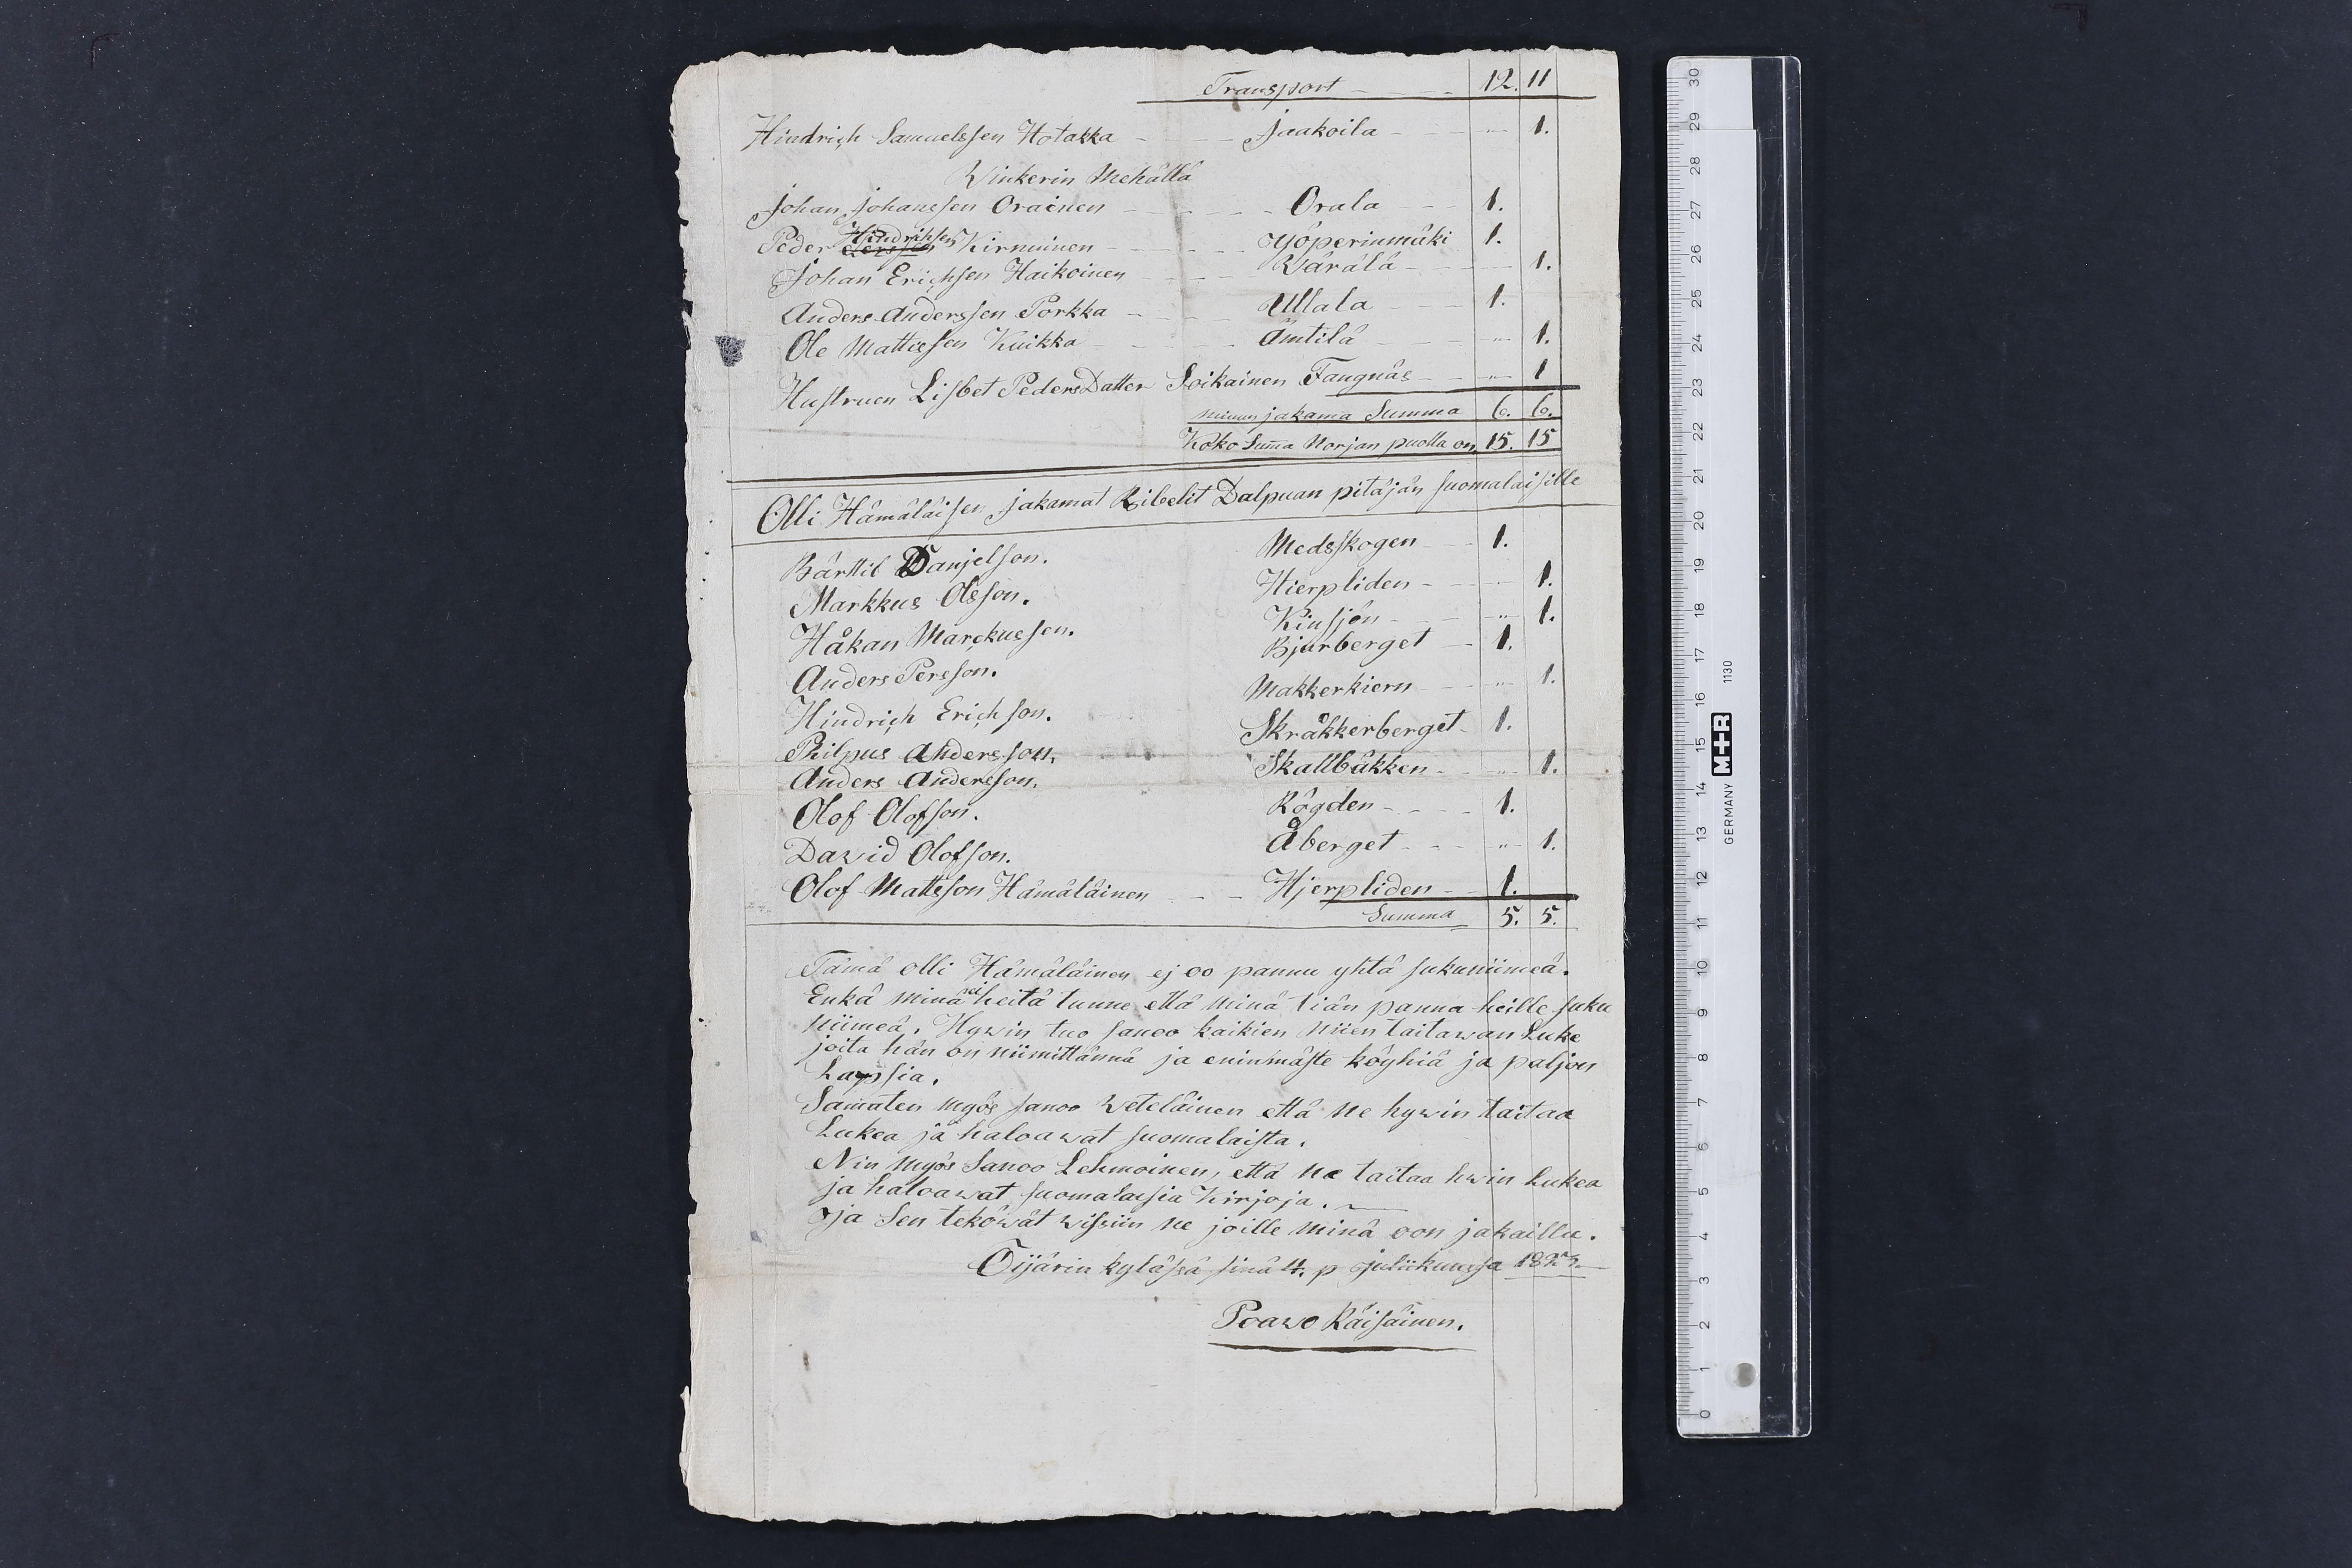 Transport 12. 11
Hindrich Samuelssen Hotakka Jaakoila „ 1.
Winkerin Mehällä
Johan Johanssen Orainen Orala 1.
Peder Hindrichsen Kirnuinen Yöperinmäki 1.
Johan Erichsen Haikoinen Wärälä 1.
Anders Anderssen Porkka Ullala 1.
Ole Mattiesen Kuikka Ämtilä „ 1.
Hustruen Lisbet PedersDatter Soikainen Tangnäs „ 1
minun jakama Summa 6. 6.
Koko Suma Norjan puolla on, 15. 15
Olli Hämäläisen jakamat Bibelit Dalpuan pitäjän suomalaisille
Bärttil Danjelson. Medskogen 1.
Markkus Olsson. Hierpliden 1.
Håkan Marckussen. Kinsjön „ 1.
Anders Persson. Bjurberget 1.
Hindrich Erichson. Makkerkiern „ 1.
Philpus Andersson. Skråkkerberget 1.
Anders Andersson. Skallbäkken „ 1.
Olof Olofson. Rögden 1.
David Olofson. Åberget „ 1.
Olof Mattsson Hämäläinen Hjerpliden 1.
Summa 5. 5.
Tämä olli Hämäläinen ej oo pannu yhtä sukuniimeä.
Enkä minä heitä tunne että minä tiän panna heille suku
niimeä. Hywin tuo sanoo kaikien niien taitawan Luke
joita hän on niimittännä ja eninmäste köyhiä ja paljon
Lapsia.
Samaten myös sanoo Weteläinen että ne hywin taitaa
Lukea ja haloawat suomalaista.
Nin myös Sanoo Lehmoinen, että ne taitaa hwin Lukea
ja haloawat suomalaisia Kirjoja.
ja Sen teköwät wissiin ne joille minä oon jakaillu.
Öijärin kylässä sinä 4. p juliikuussa 1823.
Poawo Räisäinen.
30 29 28 27 26 25 24 23 22 21 20 19 18 17 16 15 14 13 12 11 10 9 8 7 6 5 4 3 2 1 0
GERMANY M+R 1130